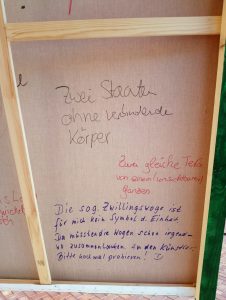 Zwei Staaten
ohne verbindende
Körper
Zwei gleiche Teile
von einem unsichtbaren
Ganzen
Die sog. Zwillingswoge ist
für mich kein Symbol d. Einheit.
Da müssten die Wogen schon irgend-
wo zusammenlaufen
Bitte nochmal probieren!